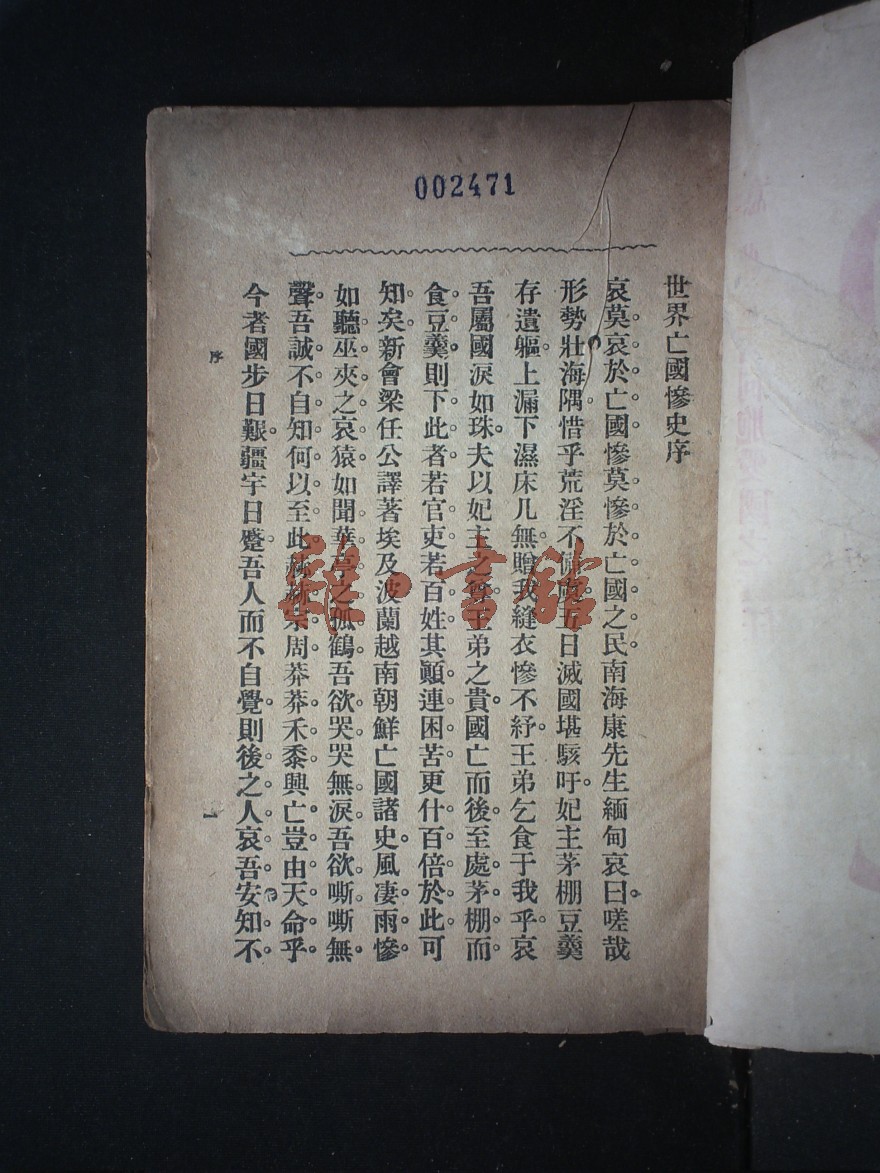 002471
世界亡國慘史序
哀莫哀於亡國慘莫慘於亡國之民南海康先生緬甸哀曰嗟哉
形勢壯海隅惜乎荒淫不備虞五日滅國堪駭吁妃主茅棚豆羹
存遺軀上漏下濕床几無贈我縫衣慘不紓王弟乞食于我乎哀
吾屬國淚如珠夫以妃主之尊王弟之貴國亡而後至處茅棚而
食豆羹則下此者若官吏若百姓其顚連困苦更什百倍於此可
知矣新會梁任公譯著埃及波蘭越南朝鮮亡國諸史風凄雨慘
如聽巫夾之哀猿如聞華亭之孤鶴吾欲哭哭無淚吾欲嘶嘶無
聲吾誠不自知何以至此赫赫宗周莽莽禾黍興亡豈由天命乎
今者國步日艱疆宇日蹙吾人而不自覺則後之人哀吾安知不
序
一
雜·書館